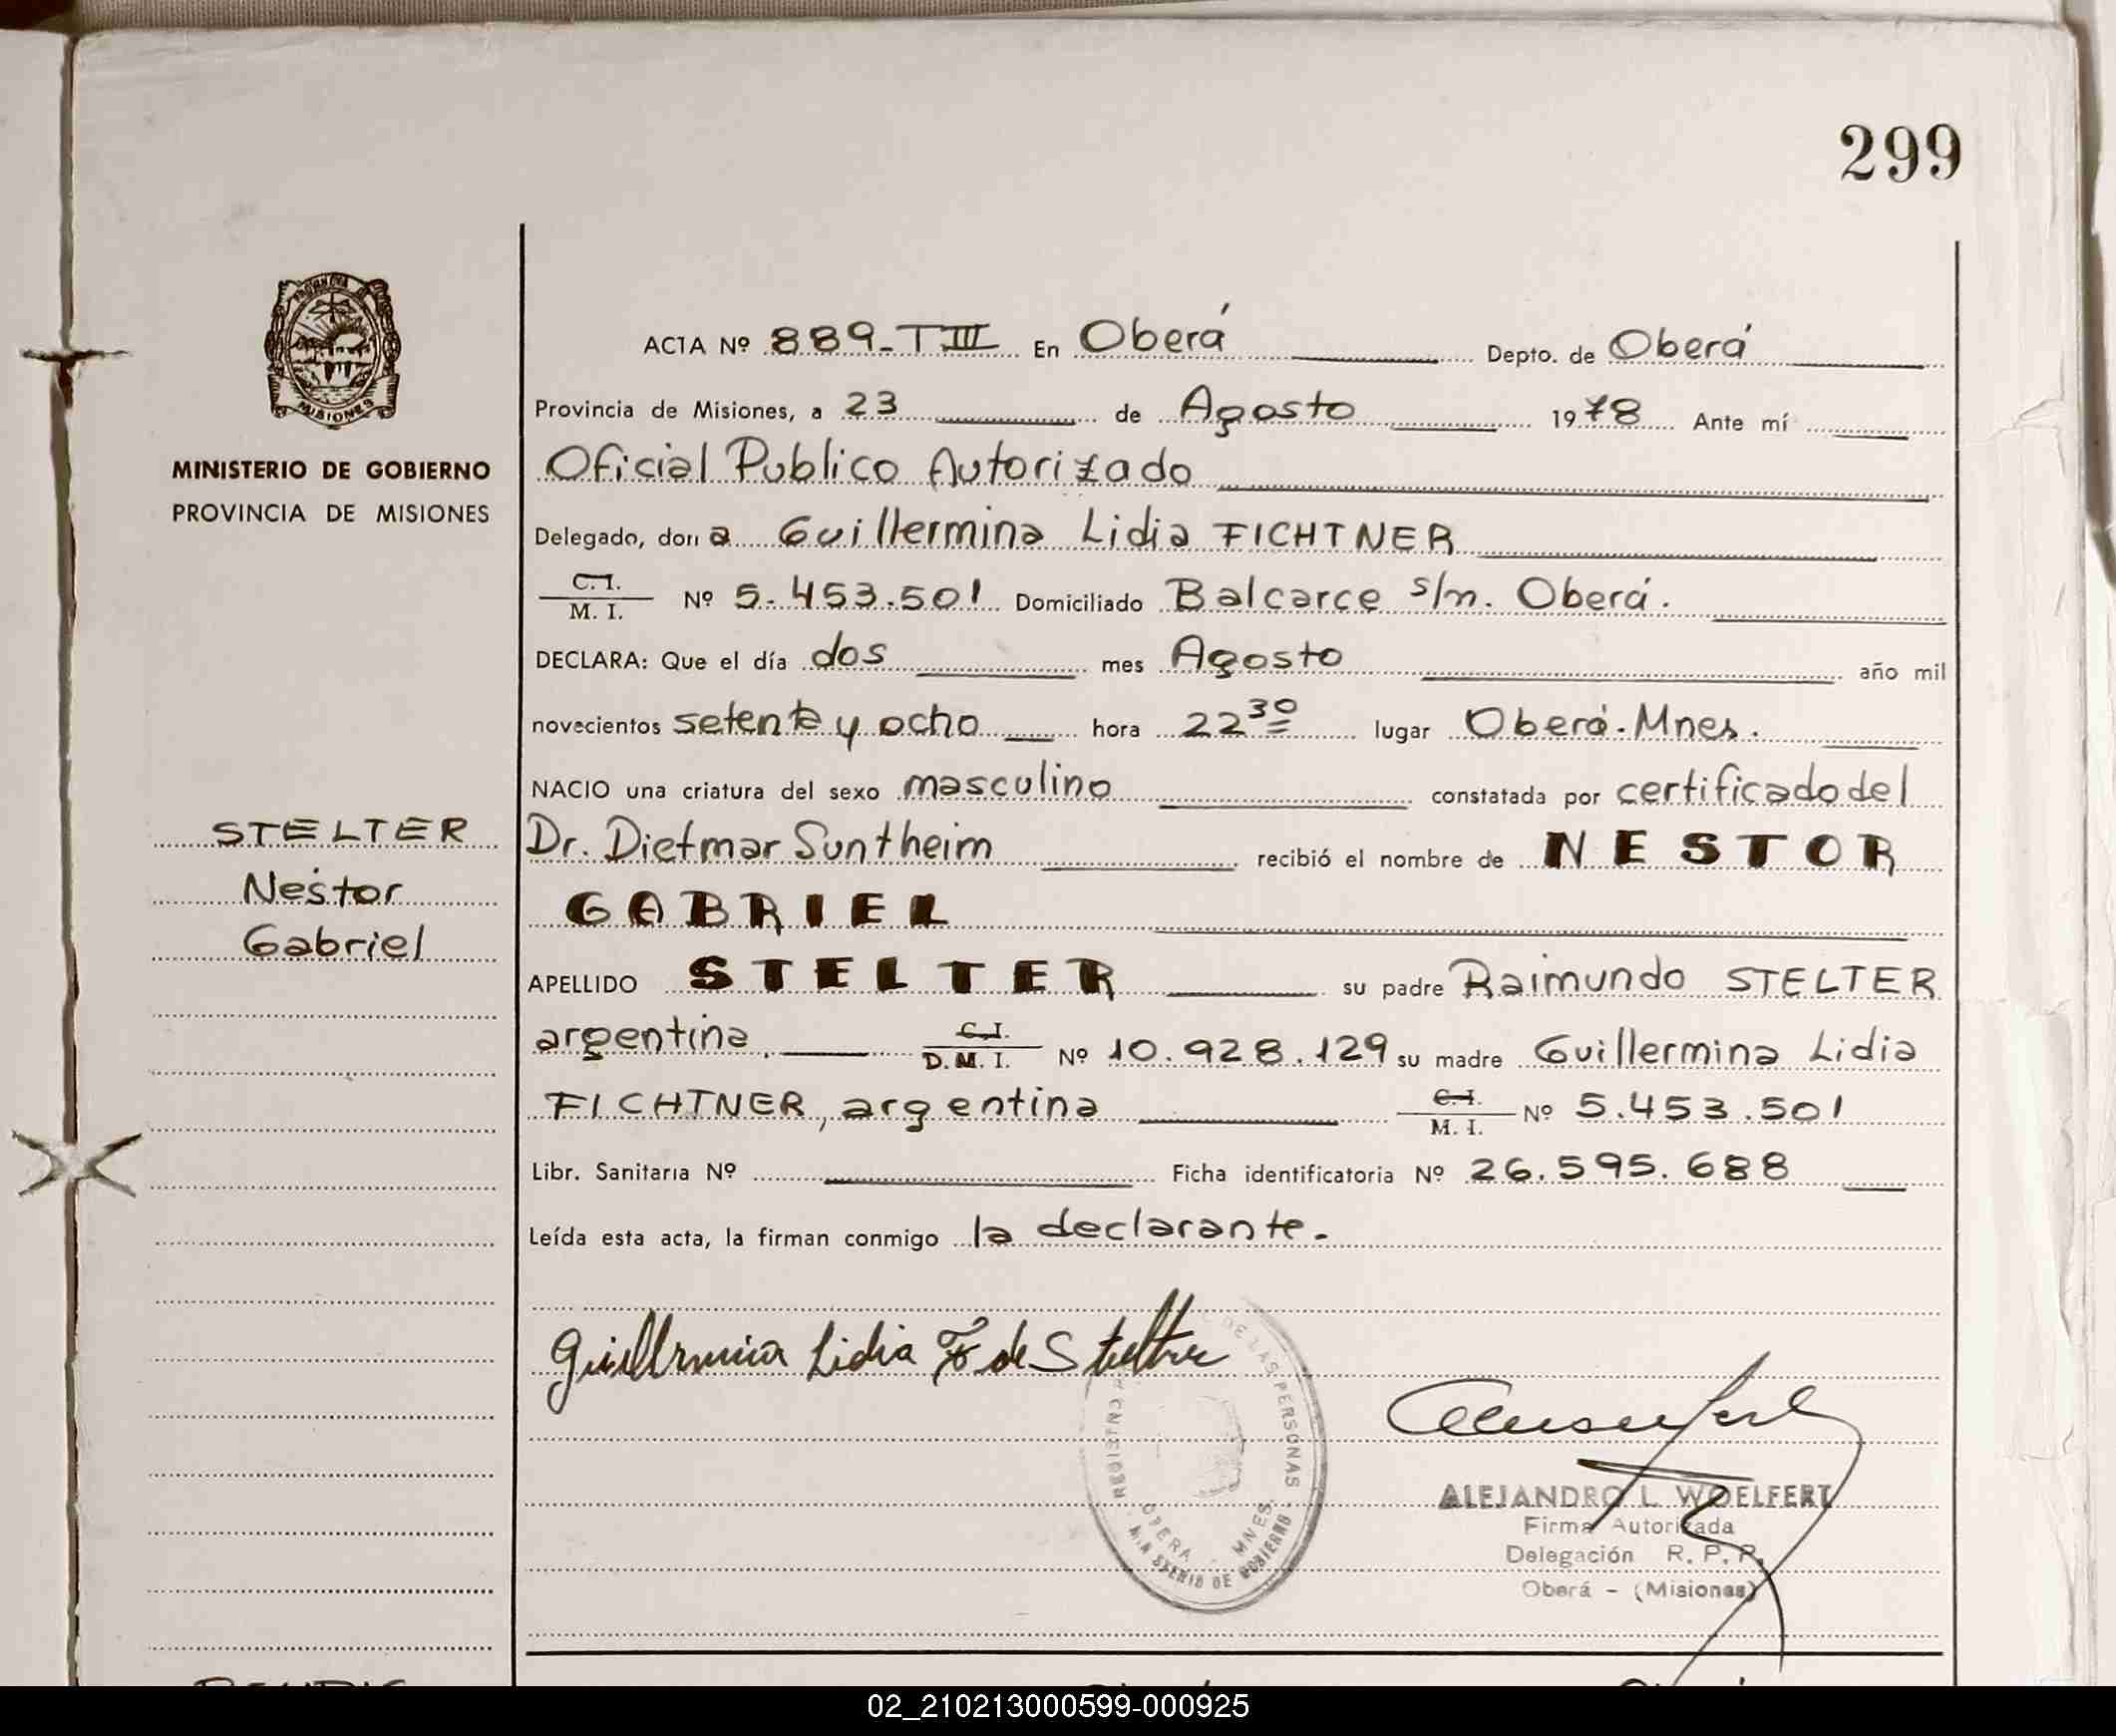 299
MISIONES
MINISTERIO DE GOBIERNO
PROVINCIA DE MISIONES
STELTER
Nestor
Gabriel
ACTA Nº 889-TIII En Oberá Depto. de Oberá
Provincia de Misiones, a 23 de Agosto 1978 Ante mí
Oficial Publico Autorizado
Delegado, don a Guillermina Lidia FICHTNER
C.I.
M. I. Nº 5.453.501 Domiciliado Balcarce s/n. Oberá.
DECLARA: Que el día dos mes Agosto año mil
novecientos setenta y ocho hora 22 30 lugar Oberá-Mnes.
NACIO una criatura del sexo masculino constatada por certificado del
Dr. Dietmar Suntheim recibió el nombre de NESTOR
GABRIEL
APELLIDO STELTER su padre Raimundo STELTER
argentina. C.I.
D.M.I. Nº 10.928.129 su madre Guillermina Lidia
FICHTNER, argentina C.I.
M. I. Nº 5.453.501
Libr. Sanitaria Nº Ficha identificatoria Nº 26.595.688
Leída esta acta, la firman conmigo la declarante.-
Guillermina Lidia F. de Stelter
DE LAS PERSONAS
OBERA - MNES.
MINISTERIO DE GOBIERNO
ALEJANDRO L. WOELFERT
Firma Autorizada
Delegación R. P. P.
Oberá - (Misiones)
02_210213000599-000925